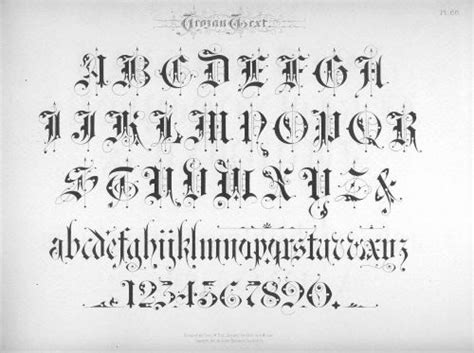 Trojan Text.
A B C D E F G H
I J K L M N O P Q R
S T U V W X Y Z &
abcdefghijklmnopqrstuvwxyz
1234567890.